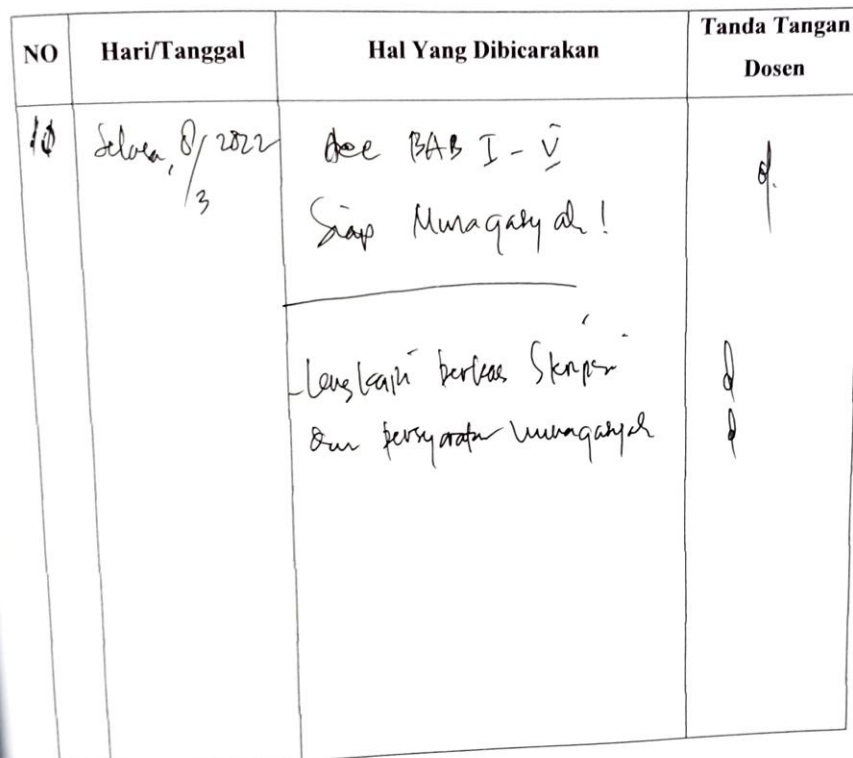 NO Hari/Tanggal Hal Yang Dibicarakan Tanda Tangan Dosen
10 Selasa, 8/3 2022 Acc BAB I - V
Siap Munaqasyah!
- Lengkapi berkas Skripsi
dan persyaratan munaqasyah